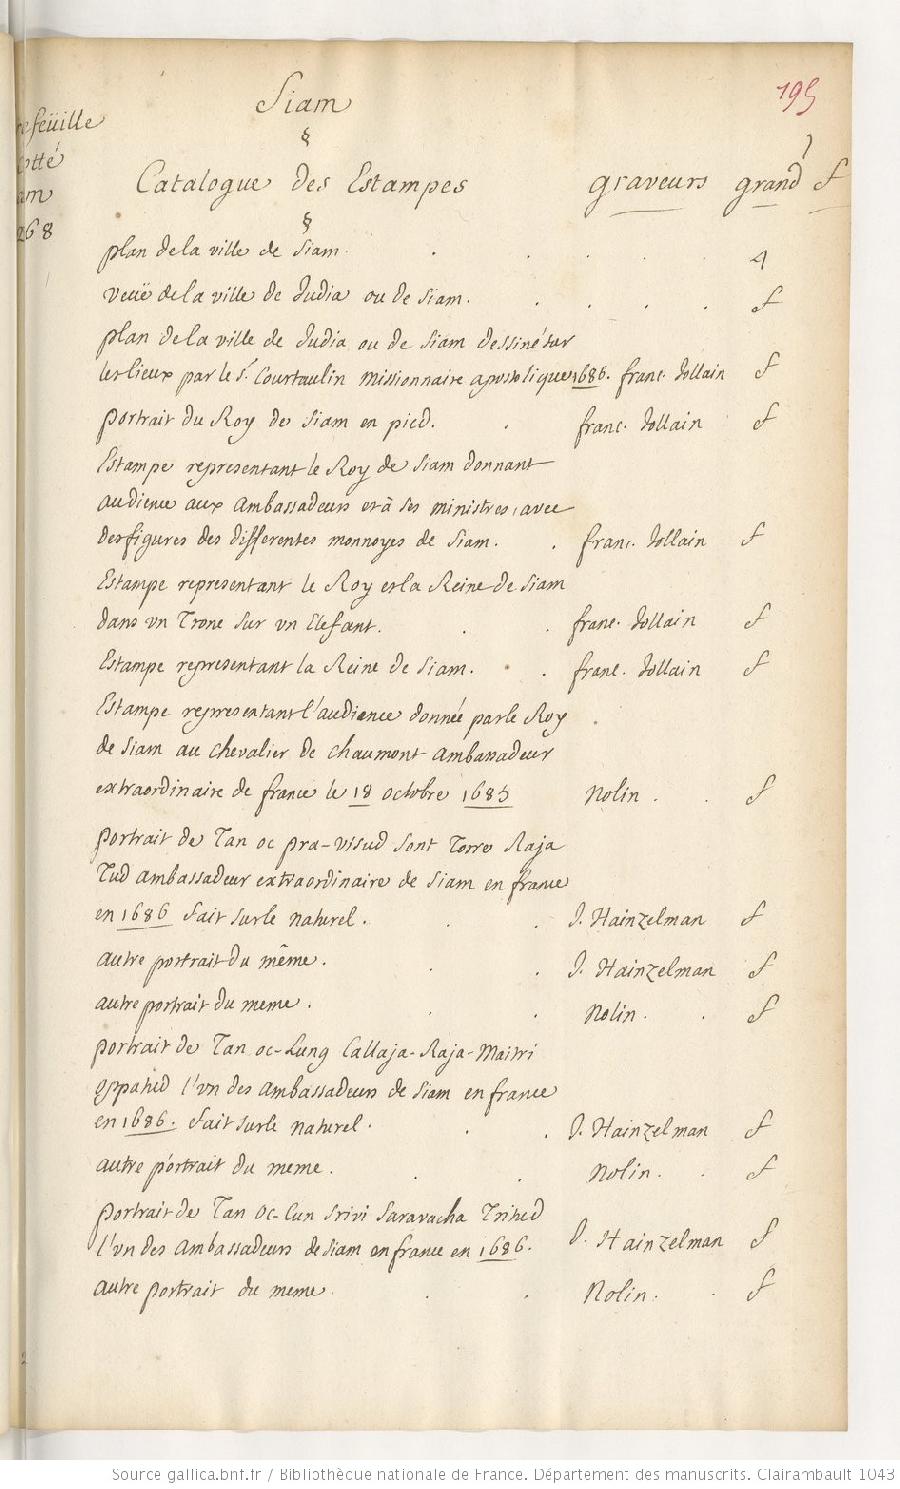 195
Siam
refeüille
Cotté
am
268
§
Catalogue des Estampes graveurs grand f
§
plan de la ville de Siam. 4
veüe de la ville de Judia ou de Siam. f
plan de la ville de Judia ou de Siam dessiné sur
les lieux par le Sr. Courtaulin missionnaire apostolique 1686. franc. Jollain f
portrait du Roy de Siam en pied. franc. Jollain f
Estampe representant le Roy de Siam donnant
audience aux ambassadeurs et à ses ministres, avec
des figures des differentes monnoyes de Siam. franc. Jollain f
Estampe representant le Roy et la Reine de Siam
dans un Trone sur un Elefant. franc. Jollain f
Estampe representant la Reine de Siam. franc. Jollain f
Estampe representant l'audience donnée par le Roy
de Siam au chevalier de chaumont ambassadeur
extraordinaire de france le 18 octobre 1685 Nolin. f
portrait de Tan oc pra-visud sont Torre Raja
Tud ambassadeur extraordinaire de Siam en france
en 1686 fait sur le naturel. J. Hainzelman f
autre portrait du même. J. Hainzelman f
autre portrait du meme. Nolin. f
portrait de Tan oc-Lung Callaja-Raja-Maitri
oppatud l'un des ambassadeurs de Siam en france
en 1686. fait sur le naturel. J. Hainzelman f
autre portrait du meme. Nolin. f
portrait de Tan oc-Cun Srivi Saravacha Trihud
l'un des ambassadeurs de Siam en france en 1686. J. Hainzelman f
autre portrait du meme Nolin. f
Source gallica.bnf.fr / Bibliothèque nationale de France. Département des manuscrits. Clairambault 1043